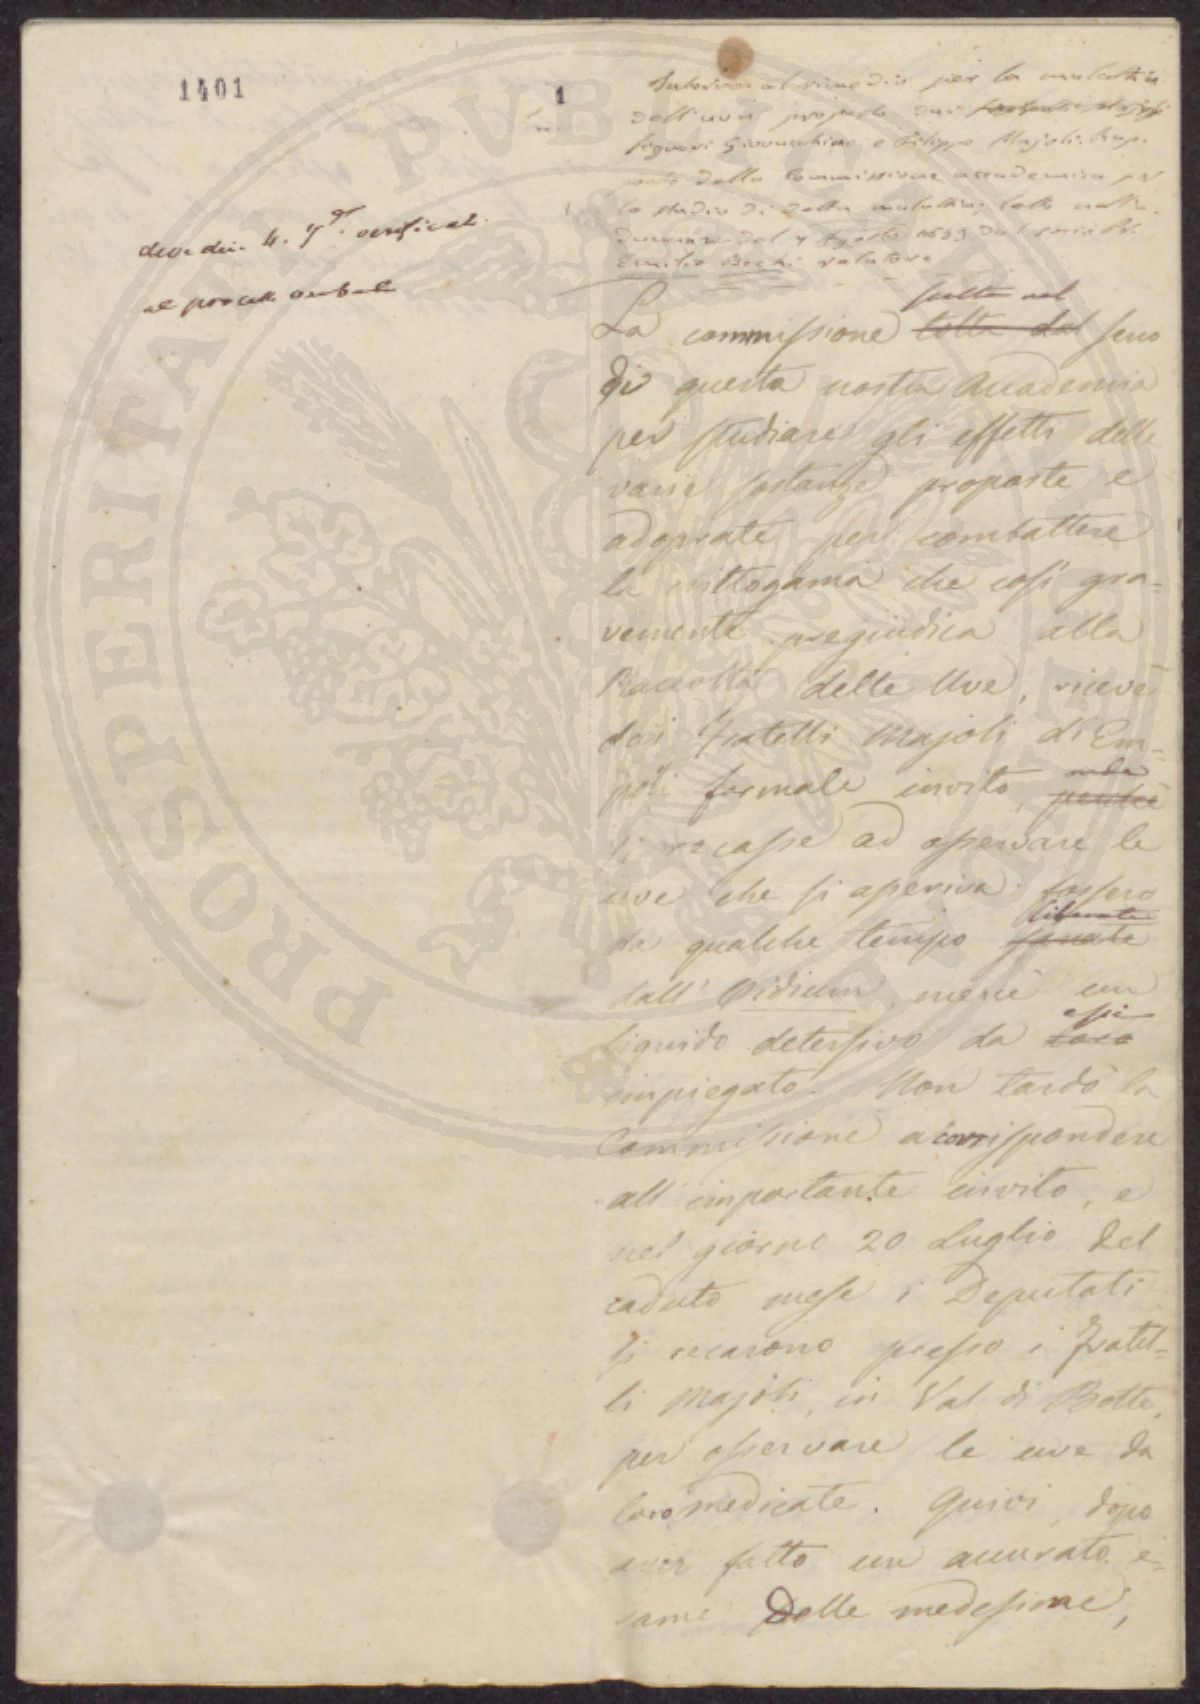 1401
1
Intorno al rimedio per la malattia
dell'uva proposto dai fratelli Majoli
Signori Giovacchino e Filippo Majoli. Rap-
porto della Commissione accademica per
lo studio di detta malattia; letto nella
Adunanza del 7 Agosto 1853 dal socio
Emilio Bechi relatore
deve dire 4. 7
al processo verbale
La commissione tolta dal scelta nel seno
di questa nostra Accademia
per studiare gli effetti delle
varie sostanze proposte e
adoprate per combattere
la crittogama che così gra-
vemente pregiudica alla
Raccolta delle Uve, riceve
dai Fratelli Majoli di Em-
poli formale invito, perchè onde
si recasse ad osservare le
uve che si asseriva fossero
da qualche tempo sanate liberate
dall' Oidium, mercè un
liquido detersivo da loro essi
impiegato. Non tardò la
Commissione a corrispondere
all' importante invito, e
nel giorno 20 Luglio del
caduto mese i Deputati
si recarono presso i Fratel-
li Majoli, in Val di Botte,
per osservare le uve da
loro medicate. Quivi, dopo
aver fatto un accurato e-
same delle medesime,
PROSPERITATI PUBLICAE